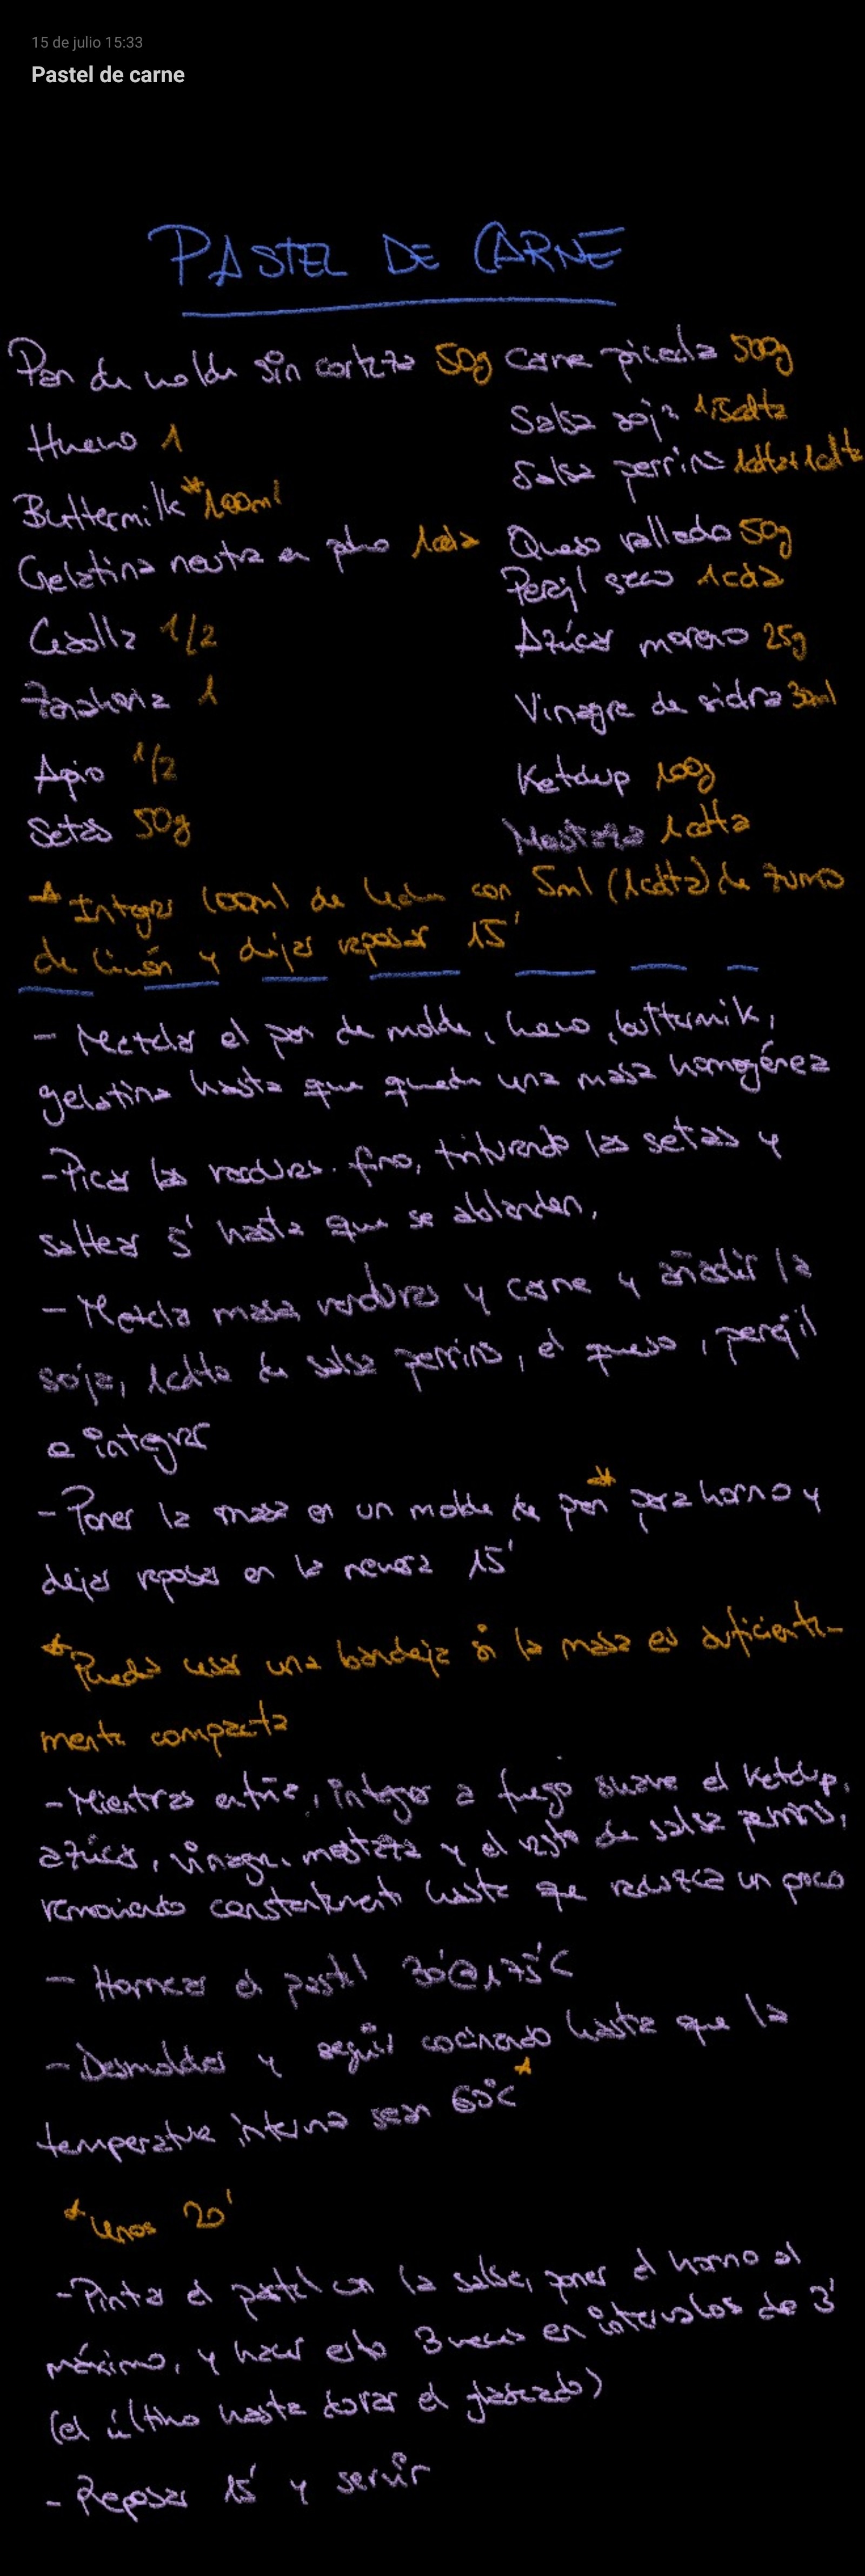 15 de julio 15:33
Pastel de carne
PASTEL DE CARNE
Pan de molde sin corteza 50g
Huevo 1
Buttermilk* 100ml
Gelatina neutra en polvo 1cda
Cebolla 1/2
Zanahoria 1
Apio 1/2
Setas 50g
Carne picada 500g
Salsa soja 1,5cdta
Salsa perrins 1cdta+1cdta
Queso rallado 50g
Perejil seco 1cda
Azúcar moreno 25g
Vinagre de sidra 30ml
Ketchup 100g
Mostaza 1cdta
* Integrar 100ml de leche con 5ml (1cdta) de zumo
de limón y dejar reposar 15'
- Mezclar el pan de molde, huevo, buttermilk,
gelatina hasta que quede una masa homogénea
- Picar las verduras fino, triturando las setas y
saltear 5' hasta que se ablanden,
- Mezcla masa, verduras y carne y añadir la
soja, 1cdta de salsa perrins, el queso, perejil
e integrar
- Poner la masa en un molde de pan* para horno y
dejar reposar en la nevera 15'
* Puedes usar una bandeja si la masa es suficiente-
mente compacta
- Mientras enfría, integrar a fuego suave el ketchup,
azúcar, vinagre, mostaza y el resto de salsa perrins,
removiendo constantemente hasta que reduzca un poco
- Hornear el pastel 30'@175°C
- Desmoldar y seguir cocinando hasta que la
temperatura interna sean 65°C*
* Unos 20'
- Pintar el pastel con la salsa, poner el horno al
máximo, y hacer esto 3 veces en intervalos de 3'
(el último hasta dorar el glaseado)
- Reposar 15' y servir